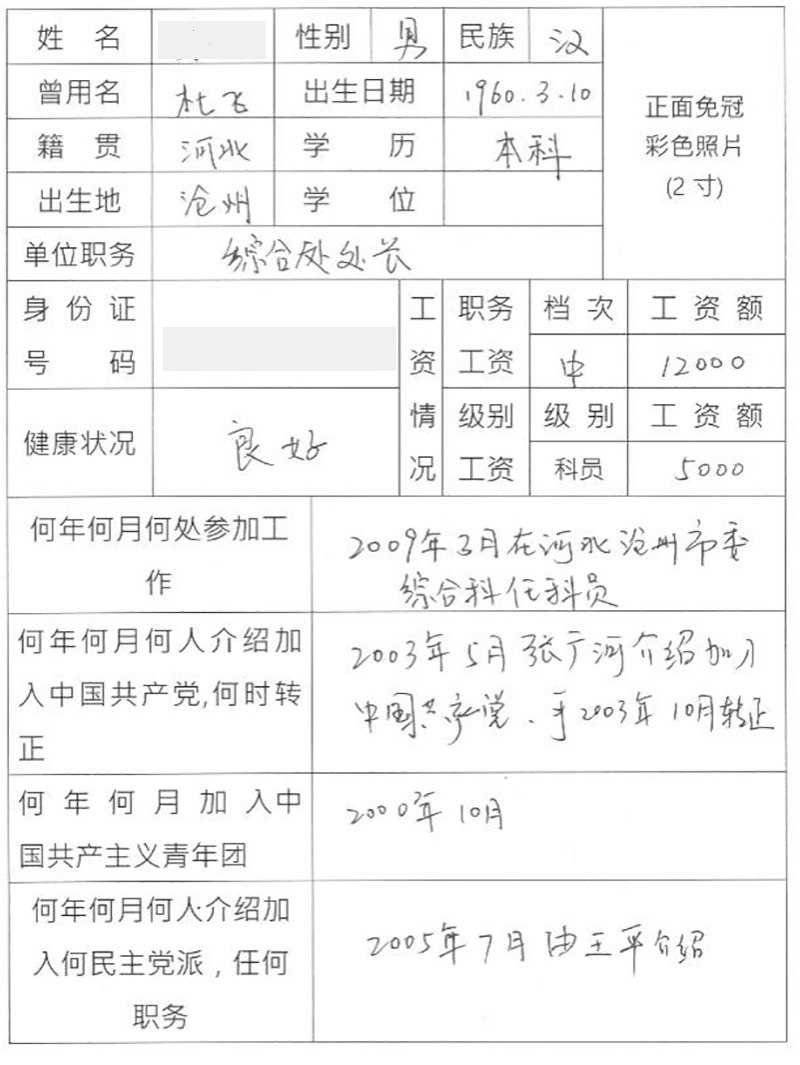 姓 名 性别 男 民族 汉
曾用名 杜飞 出生日期 1960.3.10
正面免冠
彩色照片
(2寸)
籍 贯 河北 学 历 本科
出生地 沧州 学 位
单位职务 综合处处长
身 份 证
号 码
工
资
情
况
职务
工资
档 次 工 资 额
中 12000
健康状况 良好
级别
工资
级 别 工 资 额
科员 5000
何年何月何处参加工
作
2009年3月在河北沧州市委
综合科任科员
何年何月何人介绍加
入中国共产党,何时转
正
2003年5月张广河介绍加入
中国共产党、于2003年10月转正
何 年 何 月 加 入中
国共产主义青年团
2000年10月
何年何月何人介绍加
入何民主党派，任何
职务
2005年7月由王平介绍